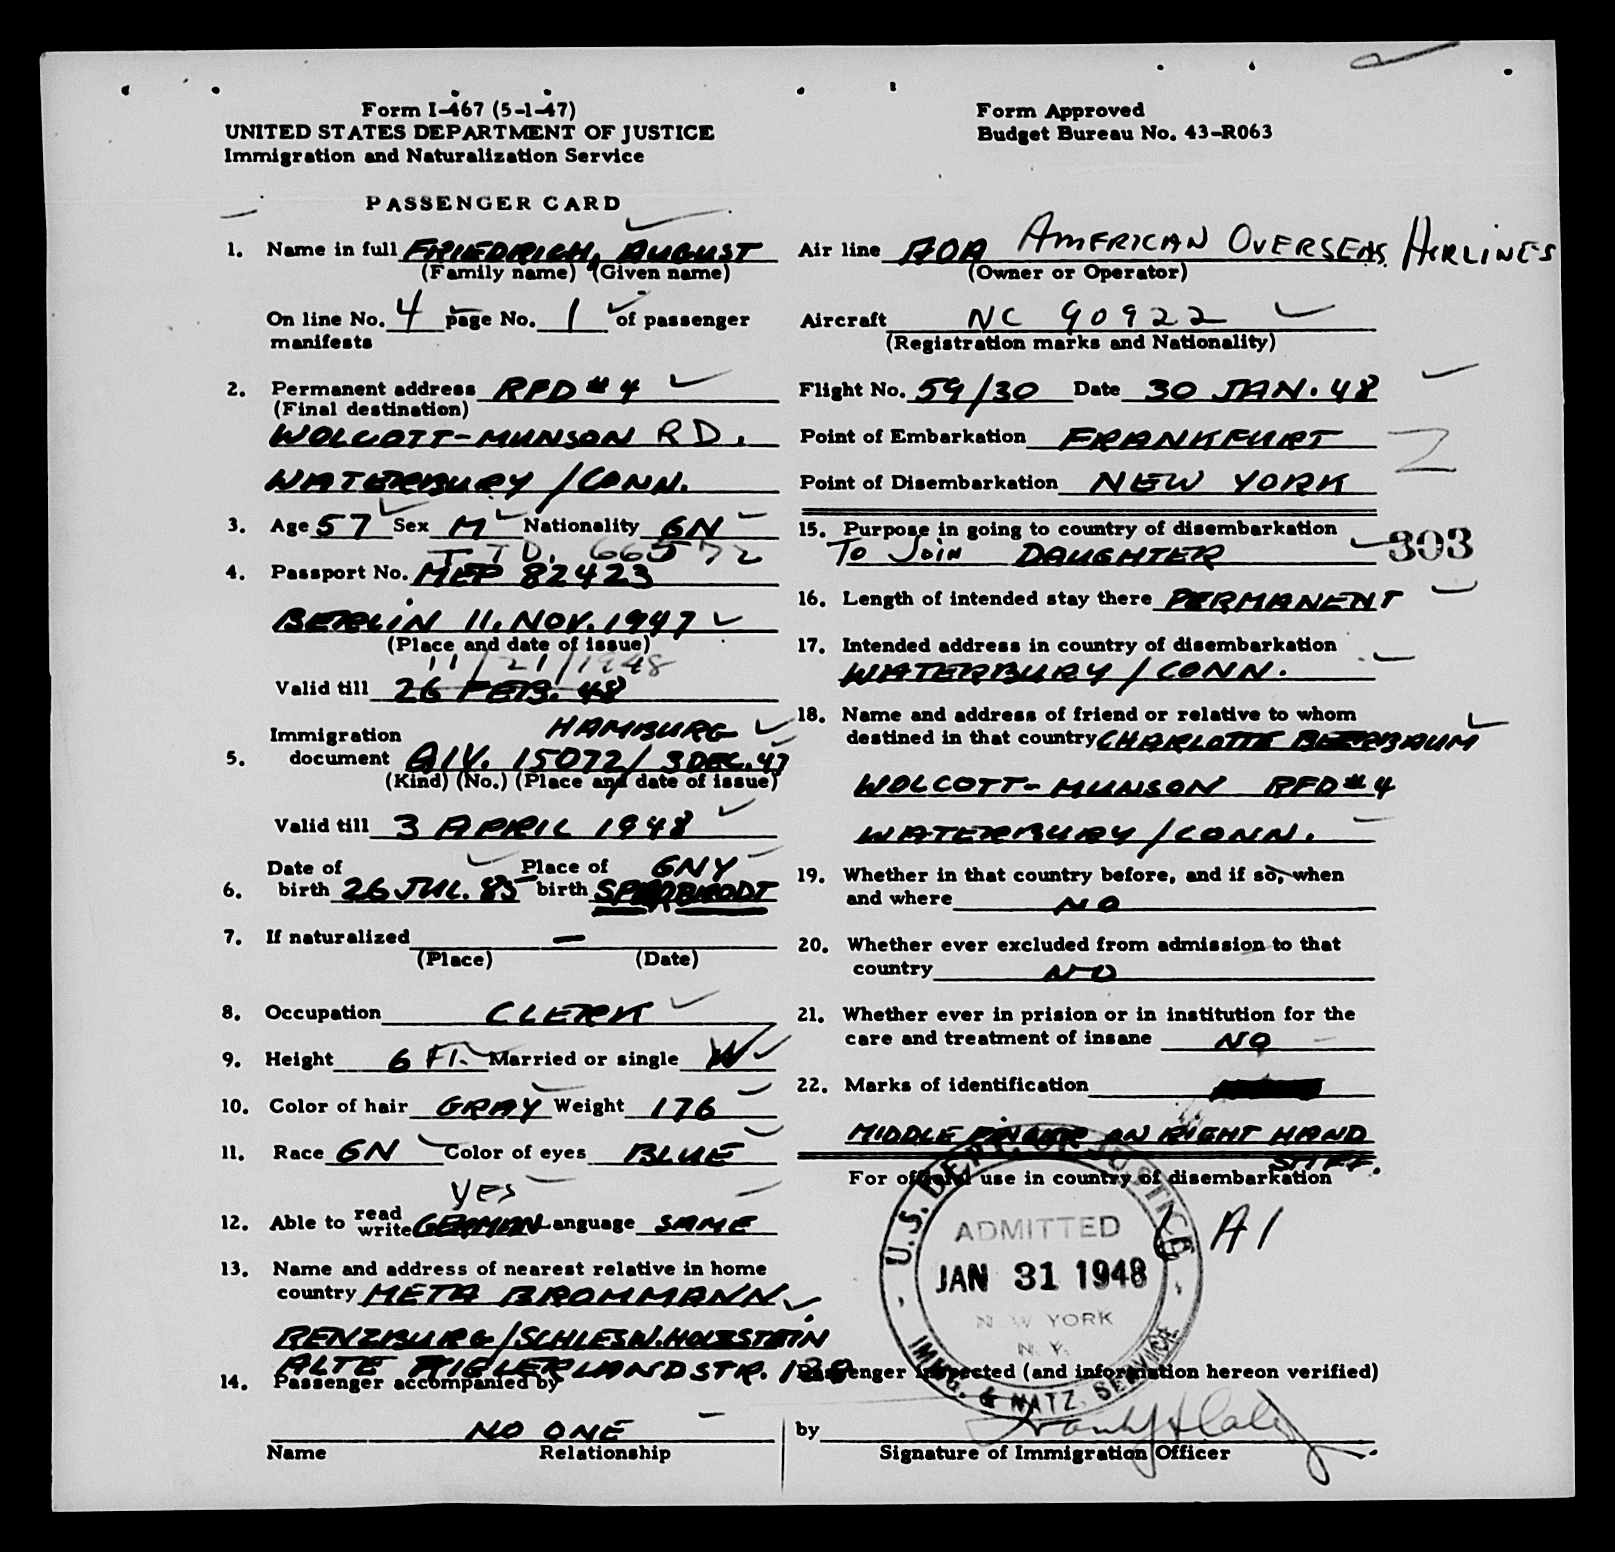 Form I-467 (5-1-47)
UNITED STATES DEPARTMENT OF JUSTICE
Immigration and Naturalization Service
Form Approved
Budget Bureau No. 43-R063
PASSENGER CARD
1. Name in full FRIEDRICH, AUGUST
(Family name) (Given name)
On line No. 4 page No. 1 of passenger
manifests
2. Permanent address RFD # 4
(Final destination)
WOLCOTT-MUNSON RD.
WATERBURY / CONN.
3. Age 57 Sex M Nationality GN
T.T.D. 66572
4. Passport No. MEP 82423
BERLIN 11. NOV. 1947
(Place and date of issue)
11/21/1948
Valid till 26 FEB. 48
HAMBURG
Immigration
5. document QIV. 15072 / 3 DEC. 47
(Kind) (No.) (Place and date of issue)
Valid till 3 APRIL 1948
Date of Place of GNY
6. birth 26 JUL. 85 birth
7. If naturalized —
(Place) (Date)
8. Occupation CLERK
9. Height 6 FT. Married or single W
10. Color of hair GRAY Weight 176
11. Race GN Color of eyes BLUE
YES
12. Able to read write GERMAN Language SAME
13. Name and address of nearest relative in home
country META BROMMANN
RENZBURG / SCHLESW. HOLSTEIN
ALTE LANDSTR.
14. Passenger accompanied by
NO ONE
Name Relationship
Air line AOA AMERICAN OVERSEAS AIRLINES
(Owner or Operator)
Aircraft NC 90922
(Registration marks and Nationality)
Flight No. 59/30 Date 30 JAN. 48
Point of Embarkation FRANKFURT
Point of Disembarkation NEW YORK
15. Purpose in going to country of disembarkation
TO JOIN DAUGHTER
303
16. Length of intended stay there PERMANENT
17. Intended address in country of disembarkation
WATERBURY / CONN.
18. Name and address of friend or relative to whom
destined in that country CHARLOTTE BEERBAUM
WOLCOTT-MUNSON RFD # 4
WATERBURY / CONN.
19. Whether in that country before, and if so, when
and where NO
20. Whether ever excluded from admission to that
country NO
21. Whether ever in prision or in institution for the
care and treatment of insane NO
22. Marks of identification
MIDDLE FINGER ON RIGHT HAND
STIFF.
For official use in country of disembarkation
U.S. DEPT. OF JUSTICE
ADMITTED
JAN 31 1948
NEW YORK
N. Y.
IMMG. & NATZ. SERVICE
A1
Passenger inspected (and information hereon verified)
by
Signature of Immigration Officer